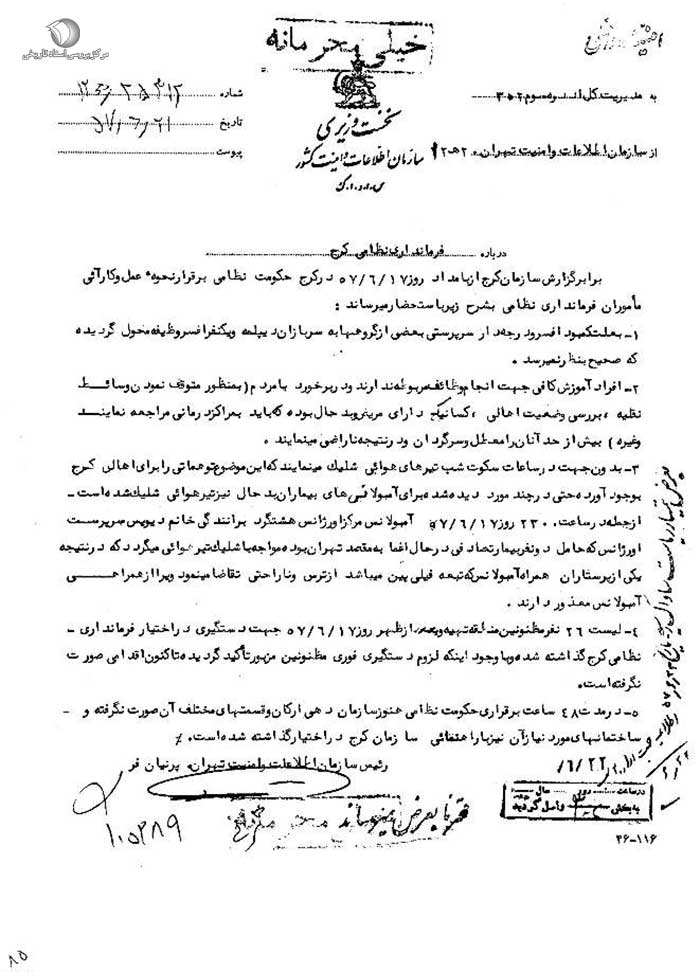 مرکز بررسی اسناد تاریخی
خیلی محرمانه
به مدیریت کل اداره سوم ۳۰۲
از سازمان اطلاعات وامنیت تهران ۲۰ هـ ۱۲
نخست وزیری
سازمان اطلاعات و امنیت کشور
س.ا.و.ا.ک
شماره
تاریخ ۵۷/۶/۲۱
پیوست
درباره فرمانداری نظامی کرج
برابرگزارش سازمان کرج ازبامداد روز ۵۷/۶/۱۷ درکرج حکومت نظامی برقرارنحوه عمل وکارآئی
مأموران فرمانداری نظامی بشرح زیرباستحضارمیرساند :
۱- بعلت کمبود افسرودرجه دار سرپرستی بعضی ازگروهها به سربازان دیپلمه ویکنفرافسروظیفه محول گردیده
که صحیح بنظرنمیرسد .
۲- افراد آموزش کافی جهت انجام وظائف مربوطه ندارند ودربرخورد بامردم (بمنظور متوقف نمودن وسائط
نقلیه ، بررسی وضعیت اهالی ، کسانیکه دارای مریض بدحال بوده که باید بمراکزدرمانی مراجعه نمایند
وغیره ) بیش ازحد آنان رامعطل وسرگردان ودرنتیجه ناراضی مینمایند .
۳- بدون جهت درساعات سکوت شب تیرهای هوائی شلیک مینمایند که این موضوع توهماتی رابرای اهالی کرج
بوجود آورده حتی درچند مورد دیده شده برای آمبولانس های بیماران بدحال نیزتیرهوائی شلیک شده است -
ازجمله درساعت ۲۳۰ روز ۵۷/۶/۱۷ آمبولانس مرکزاورژانس هشتگرد برانندگی خانم دیویس سرپرست
اورژانس که حامل دونفربیمارتصادفی درحال اغما به مقصد تهران بوده مواجه باشلیک تیرهوائی میگردد که درنتیجه
یکی ازپرستاران همراه آمبولانس که تبعه فیلی پین میباشد ازترس وناراحتی تقاضامینمود ویرا ازهمراهی
آمبولانس معذور دارند .
۴- لیست ۲۶ نفرمظنونین منطقه تهیه و ازظهر روز ۵۷/۶/۱۷ جهت دستگیری دراختیار فرمانداری -
نظامی کرج گذاشته شده وباوجود اینکه لزوم دستگیری فوری مظنونین مزبورتأکید گردیده تاکنون اقدامی صورت
نگرفته است.
۵- درمدت ۴۸ ساعت برقراری حکومت نظامی هنوزسازمان دهی ارکان وقسمتهای مختلف آن صورت نگرفته و -
ساختمانهای مورد نیازآن نیزبا سازمان کرج دراختیارگذاشته شده است.
رئیس سازمان اطلاعات وامنیت تهران. پرنیان فر
۶/۲۲/
درساعت
به بخش واصل گردید
۱۰۵۲۸۹
۳۶-۱۱۶
۸۵